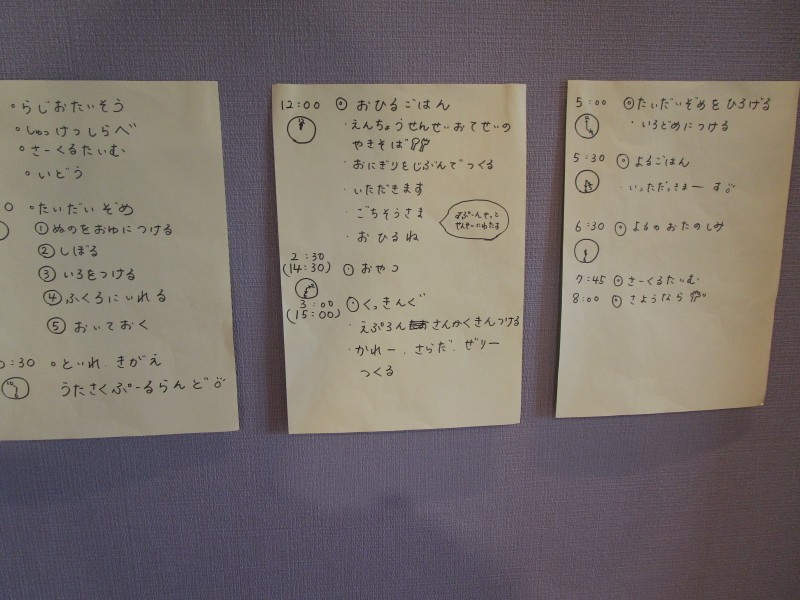 °らじおたいそう
°しゅっけっしらべ
°さーくるたいむ
°いどう
0 °たいだいぞめ
①ぬのをおゆにつける
②しぼる
③いろをつける
④ふくろにいれる
⑤おいておく
0:30 °といれ.きがえ
うたさくぷーるらんど
12:00 ⦿おひるごはん
・えんちょうせんせいおてせいの
やきそば
・おにぎりをじぶんでつくる
・いただきます
・ごちそうさま
・おひるね
すぷーんせっと
せんせーにわたす
2:30
(14:30) ⦿おやつ
3:00
(15:00) ⦿くっきんぐ
・えぷろん さんかくきんつける
・かれー.さらだ.ぜりー
つくる
5:00 ⦿たいだいぞめをひろげる
・いろどめにつける
5:30 ⦿よるごはん
・いっただっきまーす
6:30 ⦿よるのおたのしみ
7:45 ⦿さーくるたいむ
8:00 ⦿さようなら